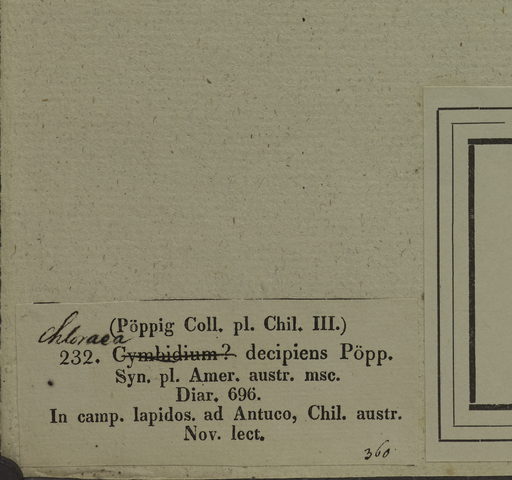 (Pöppig Coll. pl. Chil. III.)
Chloraea
232. Cymbidium? decipiens Pöpp.
Syn. pl. Amer. austr. msc.
Diar. 696.
In camp. lapidos. ad Antuco, Chil. austr.
Nov. lect.
360